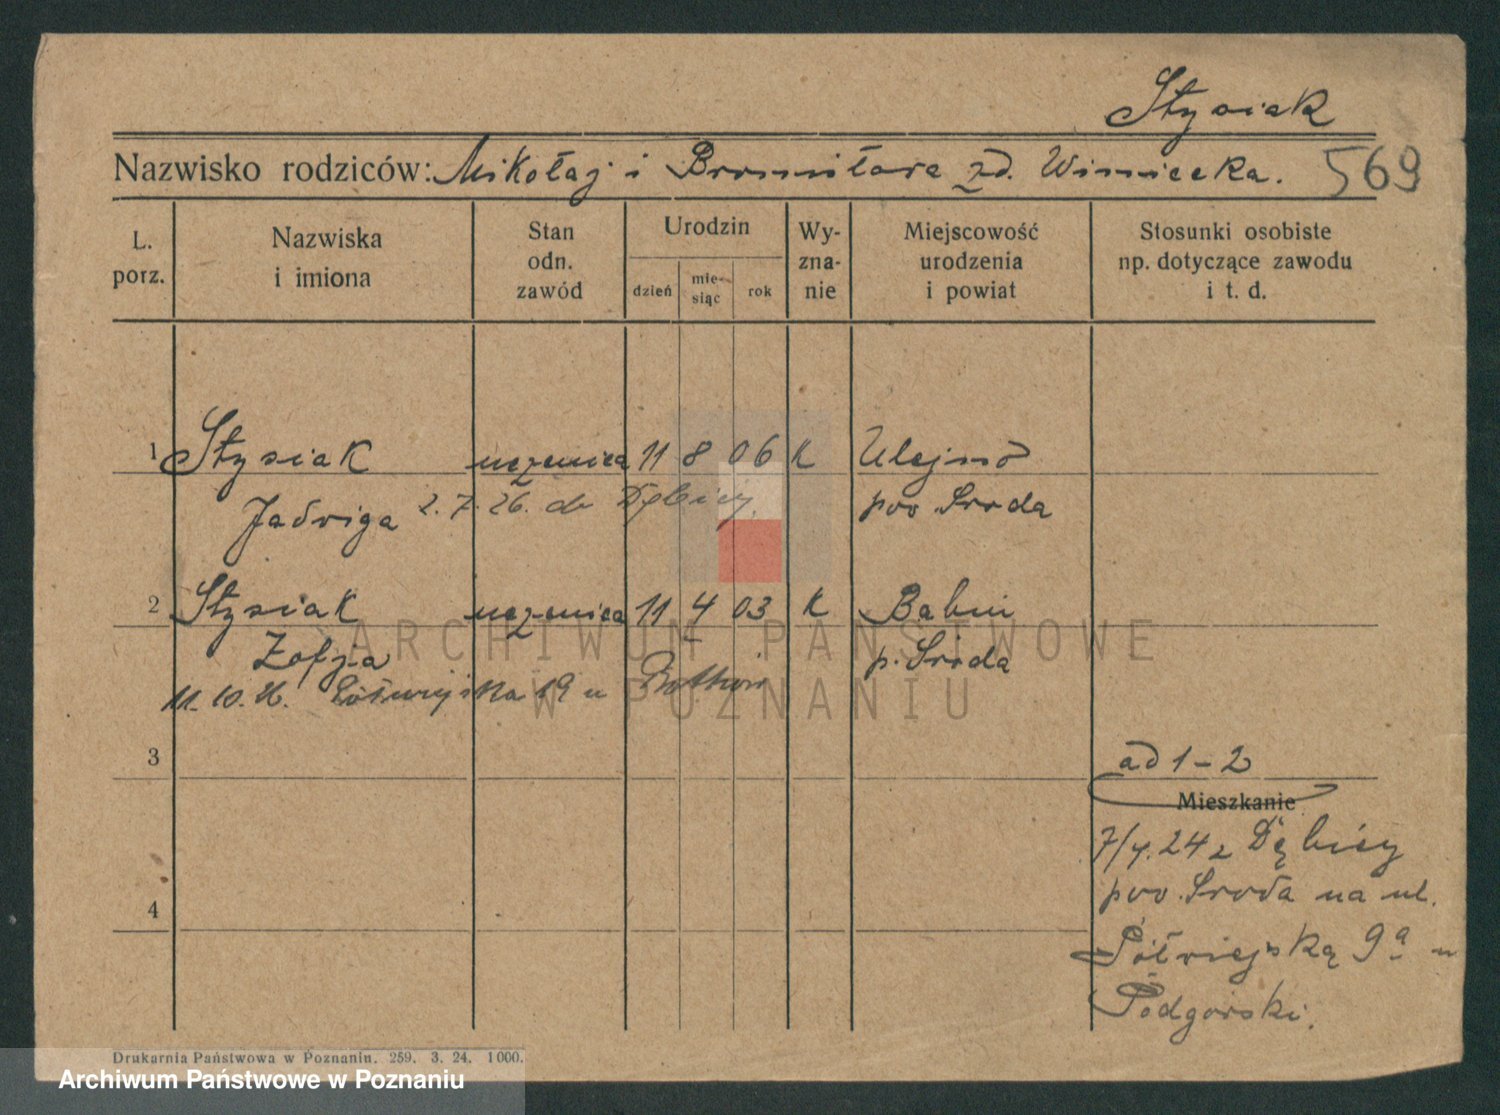 Stysiak
Nazwisko rodziców: Mikołaj i Bronisława zd. Winiecka. 569
L. porz. Nazwiska i imiona Stan odn. zawód Urodzin dzień mie-siąc rok Wy-zna-nie Miejscowość urodzenia i powiat Stosunki osobiste np. dotyczące zawodu i t. d.
1 Stysiak uczenica 11 8 06 K Ulejno
Jadwiga 2.7.26. do Dębicy. pow Sroda
2 Stysiak uczenica 11 4 03 K Babin
Zofja p. Sroda
11.10.26. Półwiejska 19 u
3
ad 1-2
Mieszkanie
7/4.24 z Dębicy
pow. Sroda na ul.
4
Półwiejską 9a u
Podgorski.
Drukarnia Państwowa w Poznaniu. 259. 3. 24. 1000.
ARCHIWUM PAŃSTWOWE
W POZNANIU
Archiwum Państwowe w Poznaniu